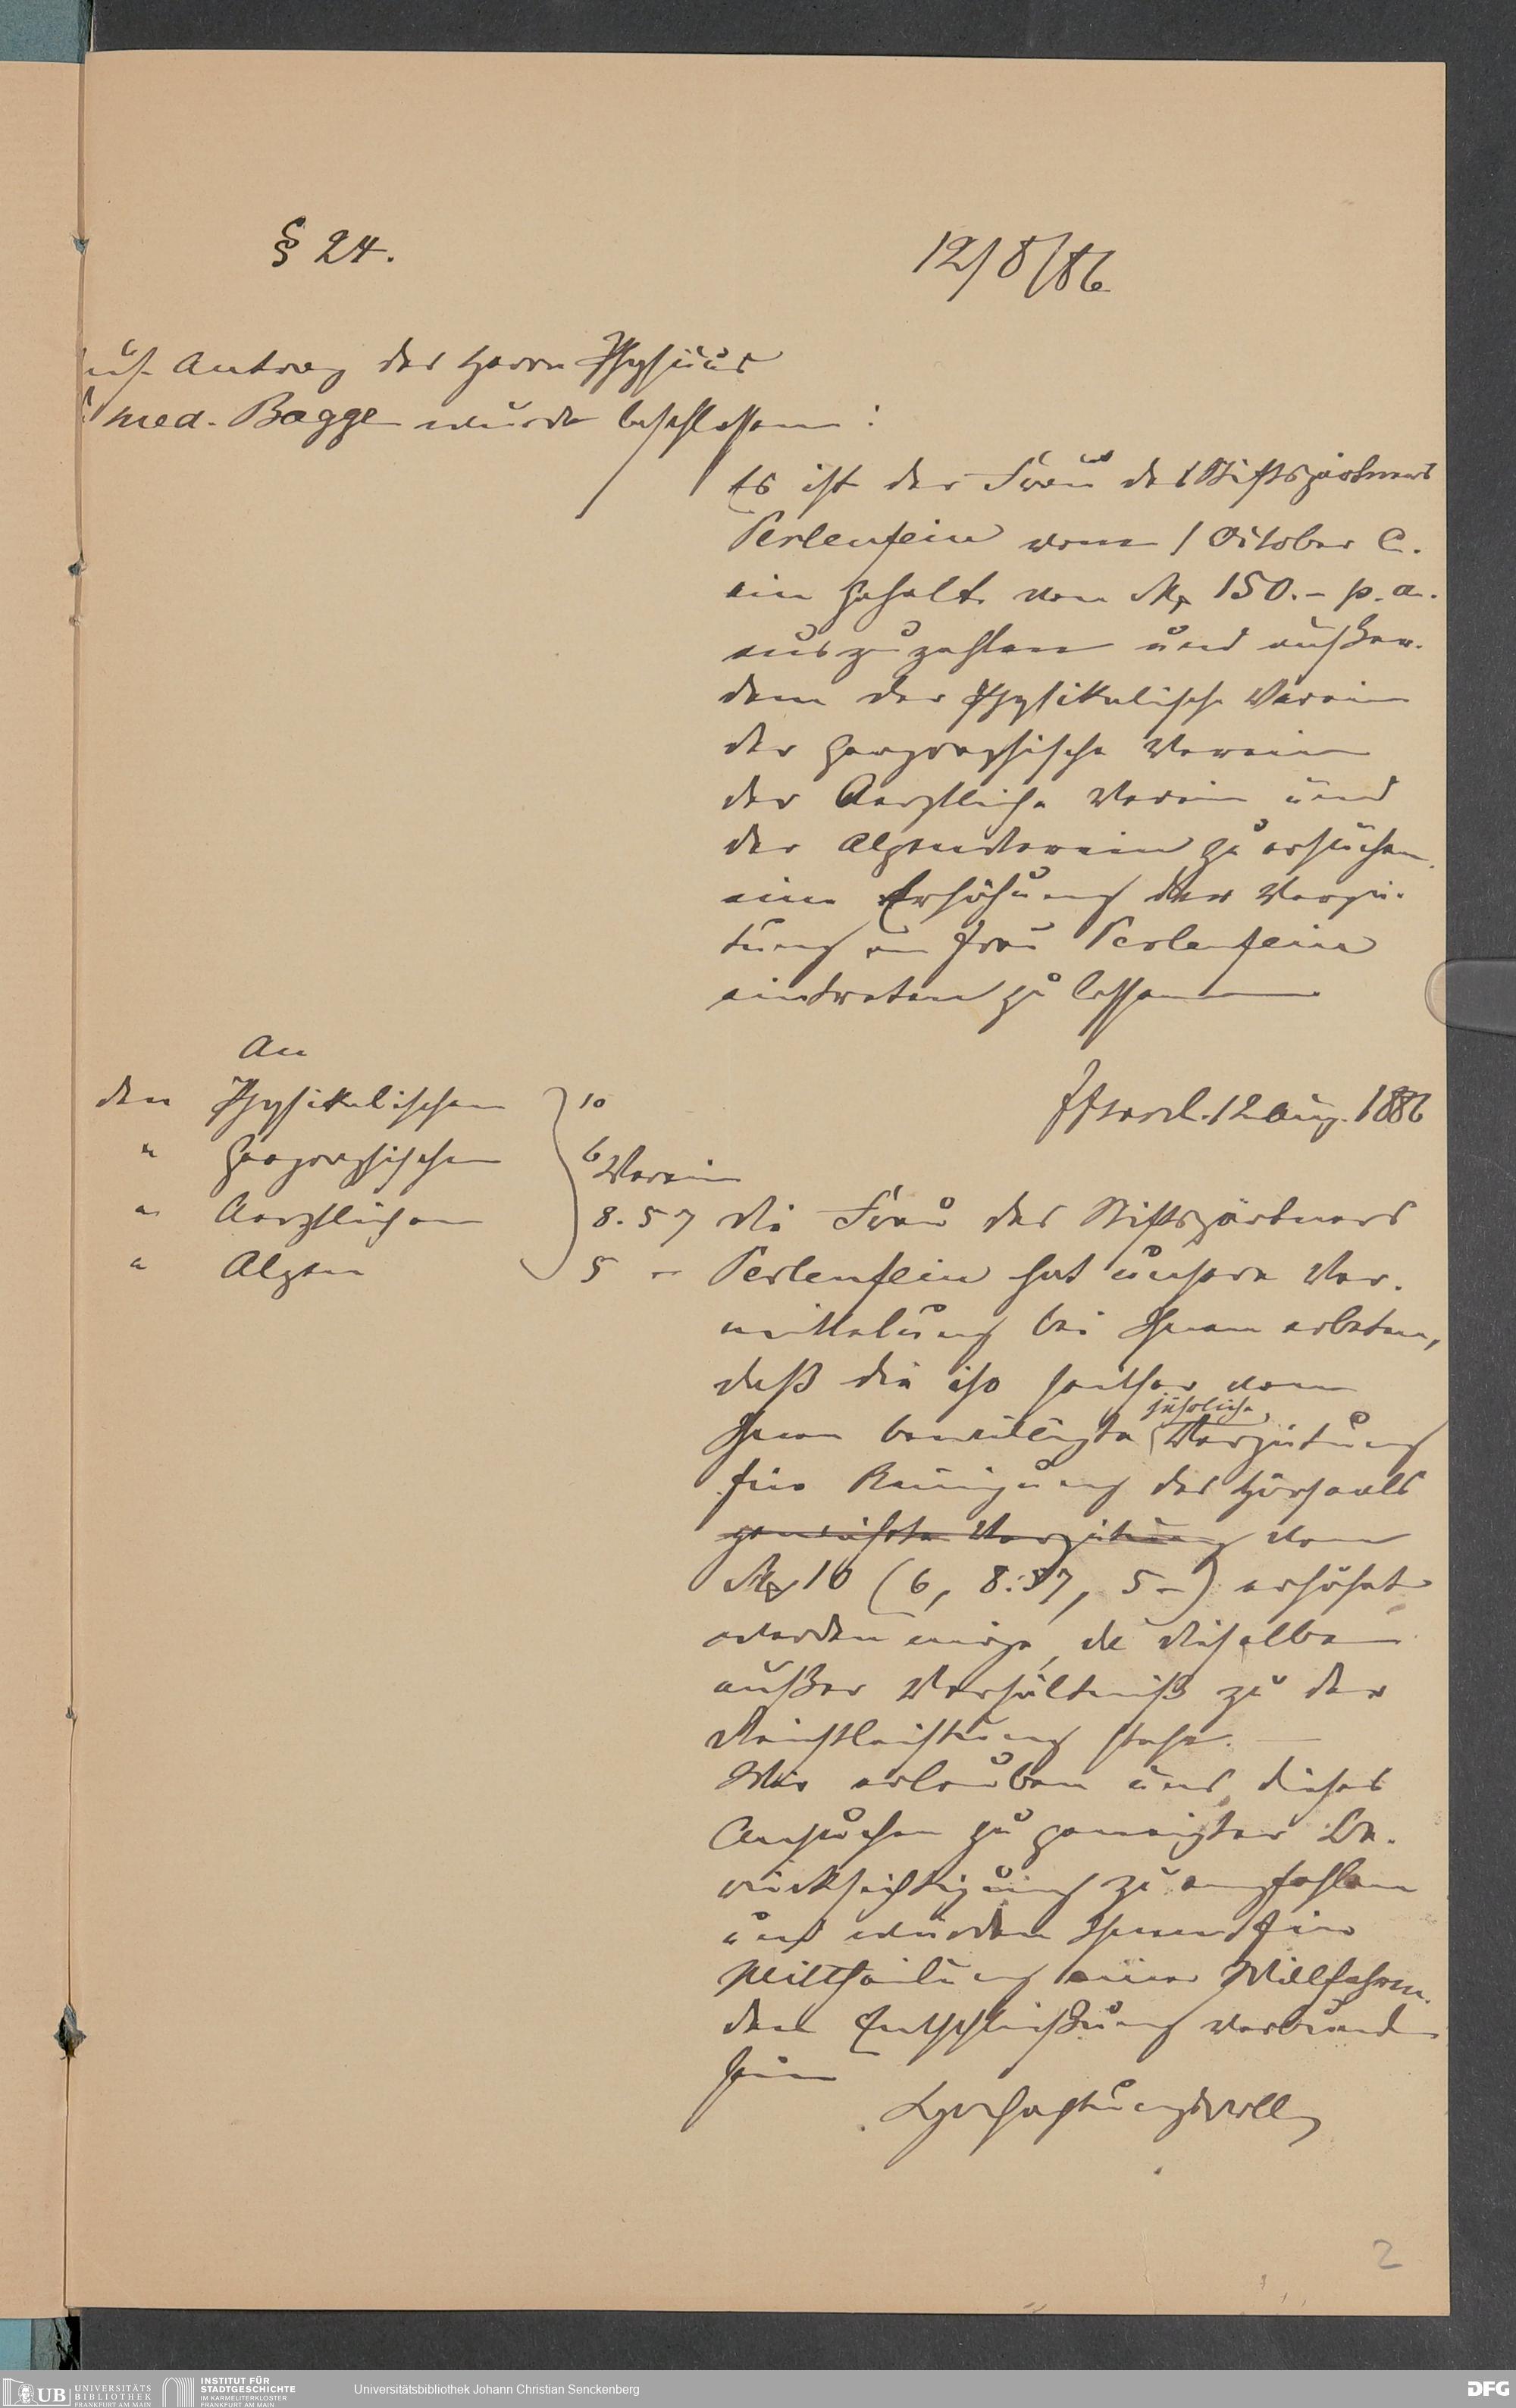 § 24.
12/8/86
Auf Antrag des Herrn Physicus
Dr med. Bagge wurde beschlossen:
Es ist der Frau des Stiftsgärtners
Perlenfein vom 1 October c.
ein Gehalt von M 150.- p. a.
auszuzahlen und außer-
dem der Physikalische Verein
der Geographische Verein
der Aerztliche Verein und
der Alpenverein zu ersuchen
eine Erhöhung der Vergü-
tung an Frau Perlenfein
eintreten zu lassen
An
den Physikalischen 10
" Geographischen 6
Verein
" Aerztlichen 8.57
" Alpen 5 –
Ffurt d. 12 Aug. 1886
Die Frau des Stiftsgärtners
Perlenfein hat unsere Ver-
mittelung bei Ihnen erbeten,
daß die ihr seither von
Ihnen bewilligte jährliche Vergütung
für Reinigung des Hörsaals
gewährte Vergütung von
M 10 (6, 8.57, 5 –) erhöht
werden möge, da dieselbe
außer Verhältniß zu der
Dienstleistung stehe. –
Wir erlauben uns dieses
Ansuchen zu geneigter Be-
rücksichtigung zu empfehlen
und würden Ihnen für
Mittheilung einer Willfahren-
den Entschließung verbunden
sein
Hochachtungsvoll
2
UB UNIVERSITÄTS
BIBLIOTHEK
FRANKFURT AM MAIN
INSTITUT FÜR
STADTGESCHICHTE
IM KARMELITERKLOSTER
FRANKFURT AM MAIN
Universitätsbibliothek Johann Christian Senckenberg
DFG